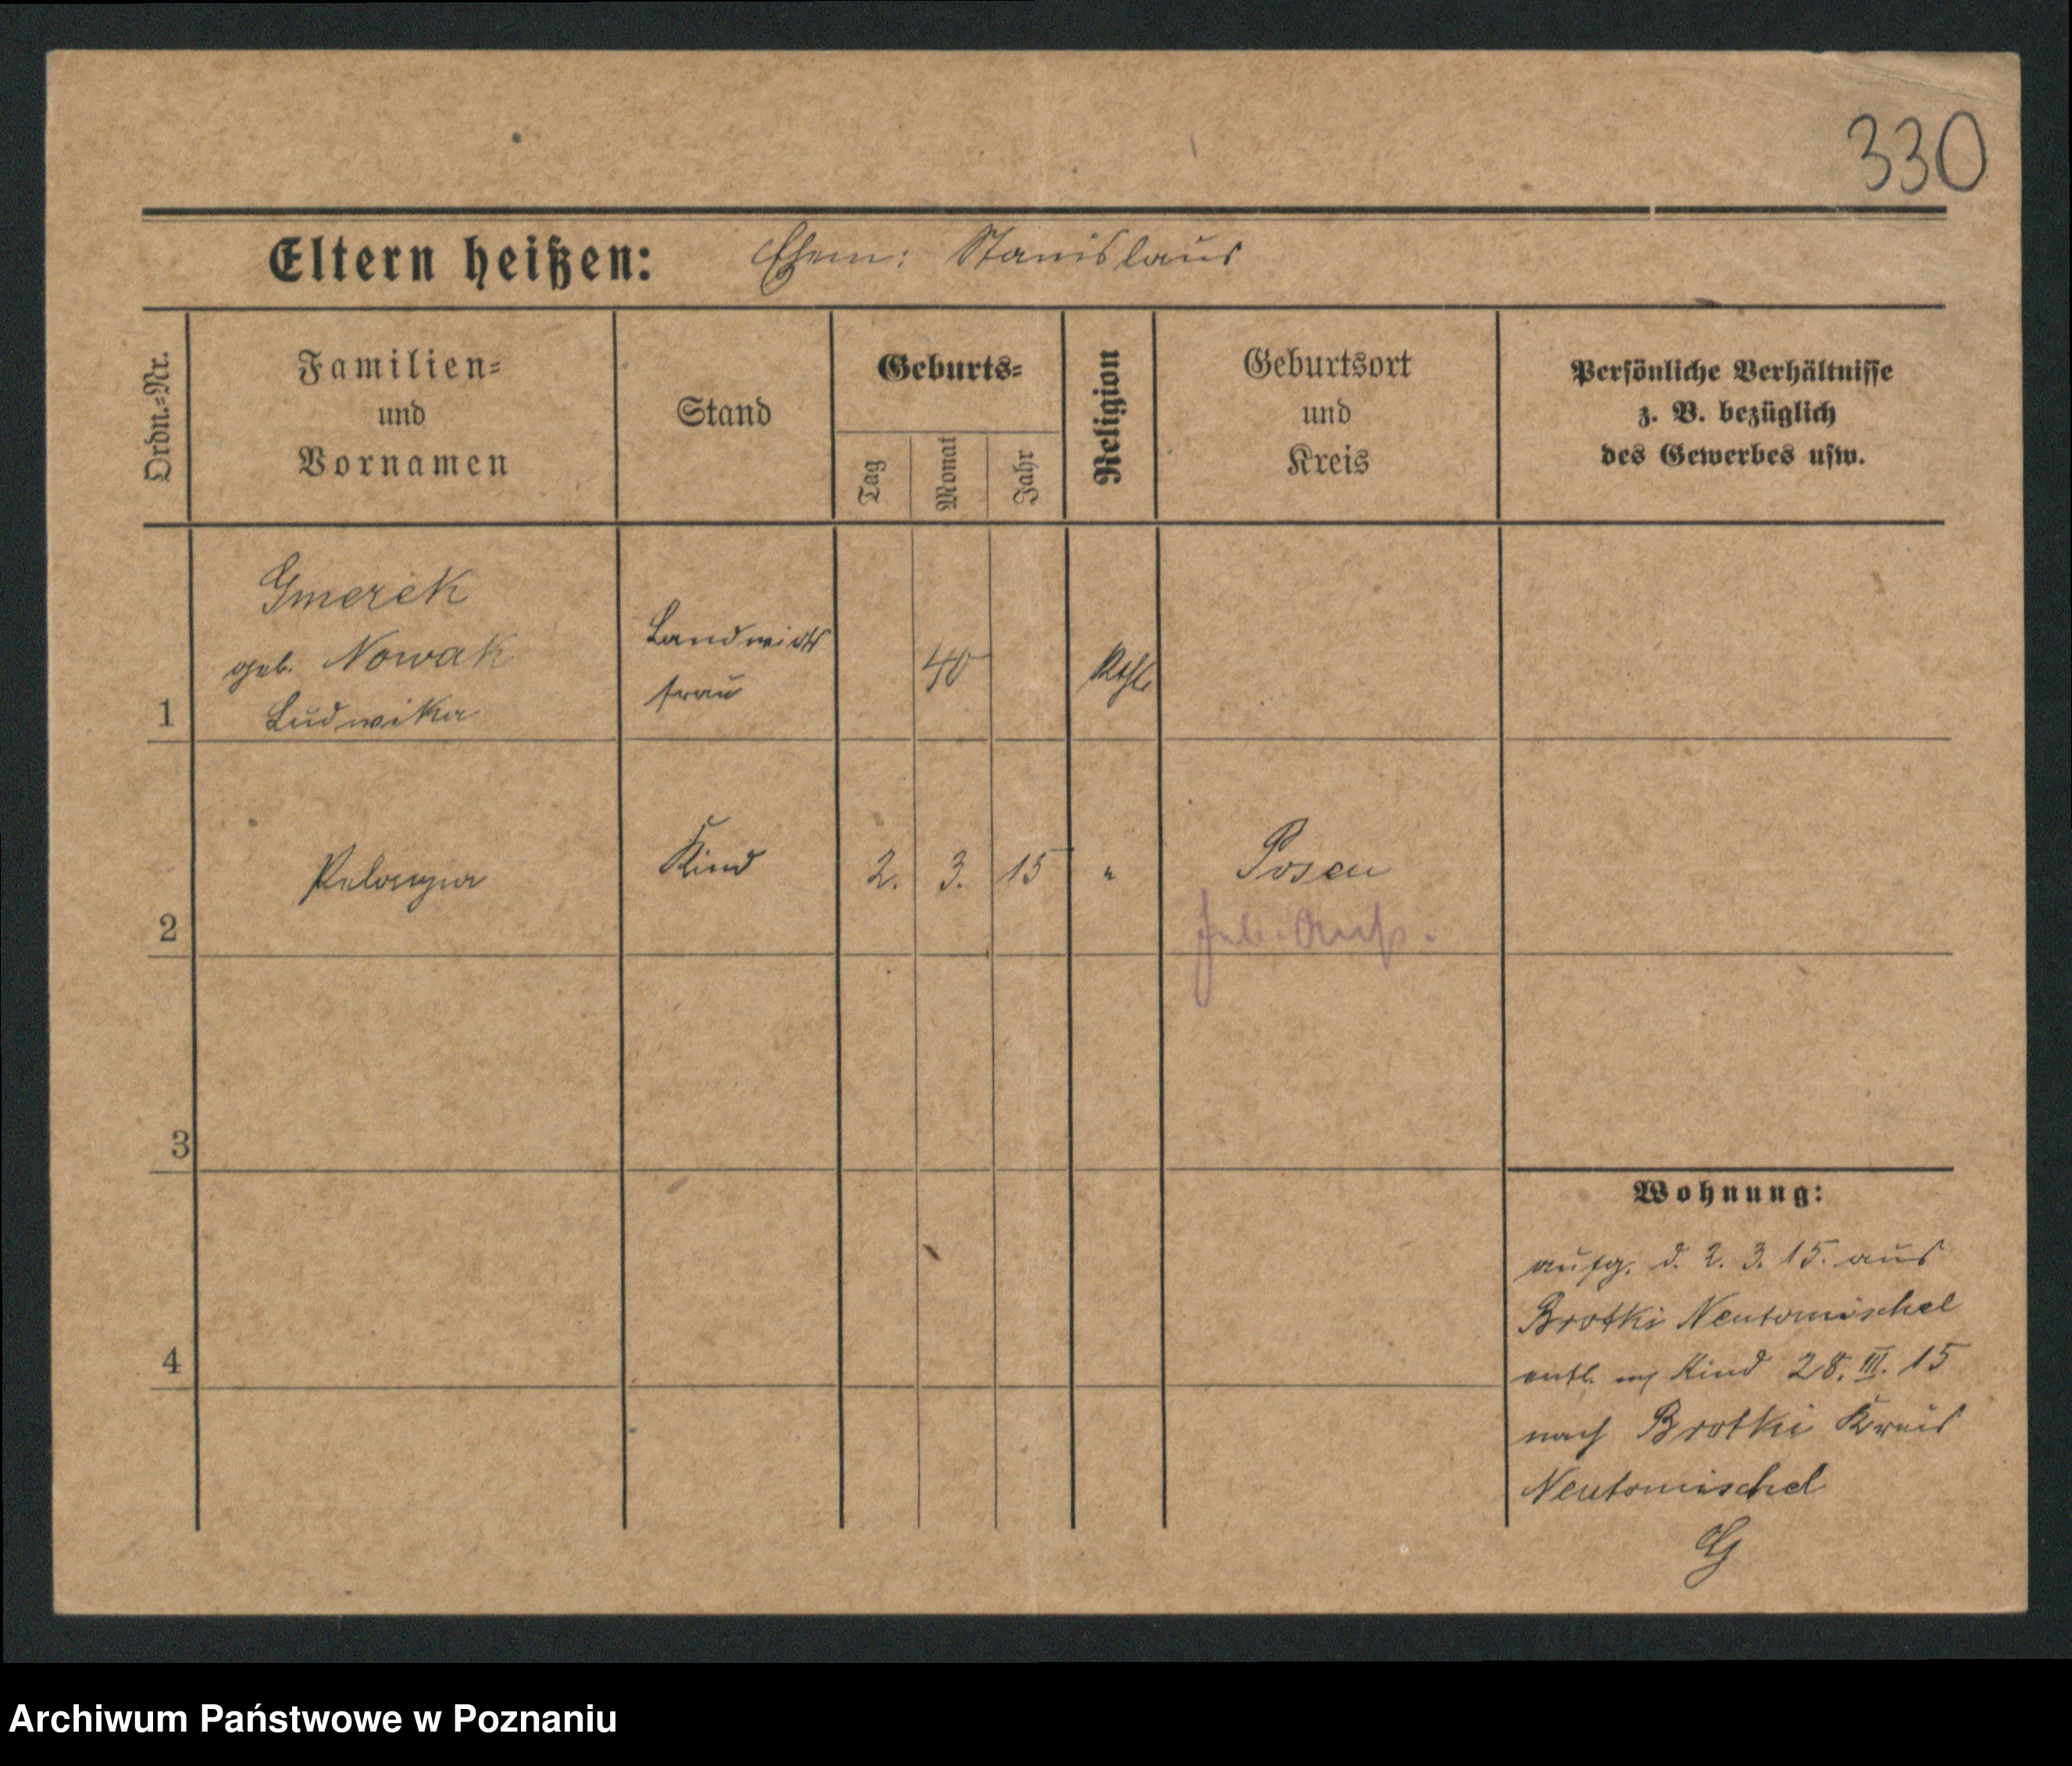 330
Eltern heißen: Ehem: Stanislaus
Ordn.-Nr.
Familien-
und
Vornamen
Stand
Geburts-
Tag
Monat
Jahr
Religion
Geburtsort
und
Kreis
Persönliche Verhältnisse
z. B. bezüglich
des Gewerbes usw.
1
Gmerek
geb. Nowak
Ludwika
Landwirts
frau
40
Kath.
2
Pelagya
Kind
2. 3. 15
"
Posen
3
4
Wohnung:
aufg. d. 2. 3. 15. aus
Brotki Neutomischel
entl. m/ Kind 28. III. 15
nach Brotki Kreis
Neutomischel
Archiwum Państwowe w Poznaniu